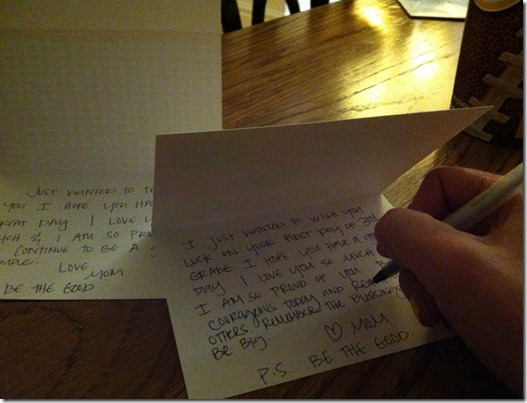 JUST WANTED TO
YOU I HOPE YOU
DAY I LOVE
& I AM SO
CONTINUE TO BE A
LOVE
MOM
BE THE GOOD
I JUST WANTED TO WISH YOU
LUCK ON YOUR FIRST DAY OF
GRADE. I HOPE YOU HAVE A
DAY I LOVE YOU SO MUCH
I AM SO PROUD OF YOU
COURAGEOUS TODAY AND
OTHERS REMEMBER THE
BE BIG
♡ MOM
P.S. BE THE GOOD